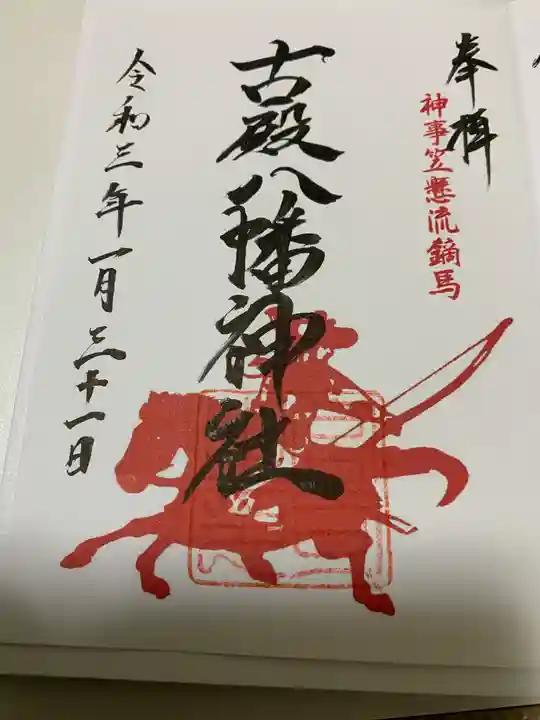 奉拝
神事笠懸流鏑馬
古殿八幡神社
令和三年一月三十一日